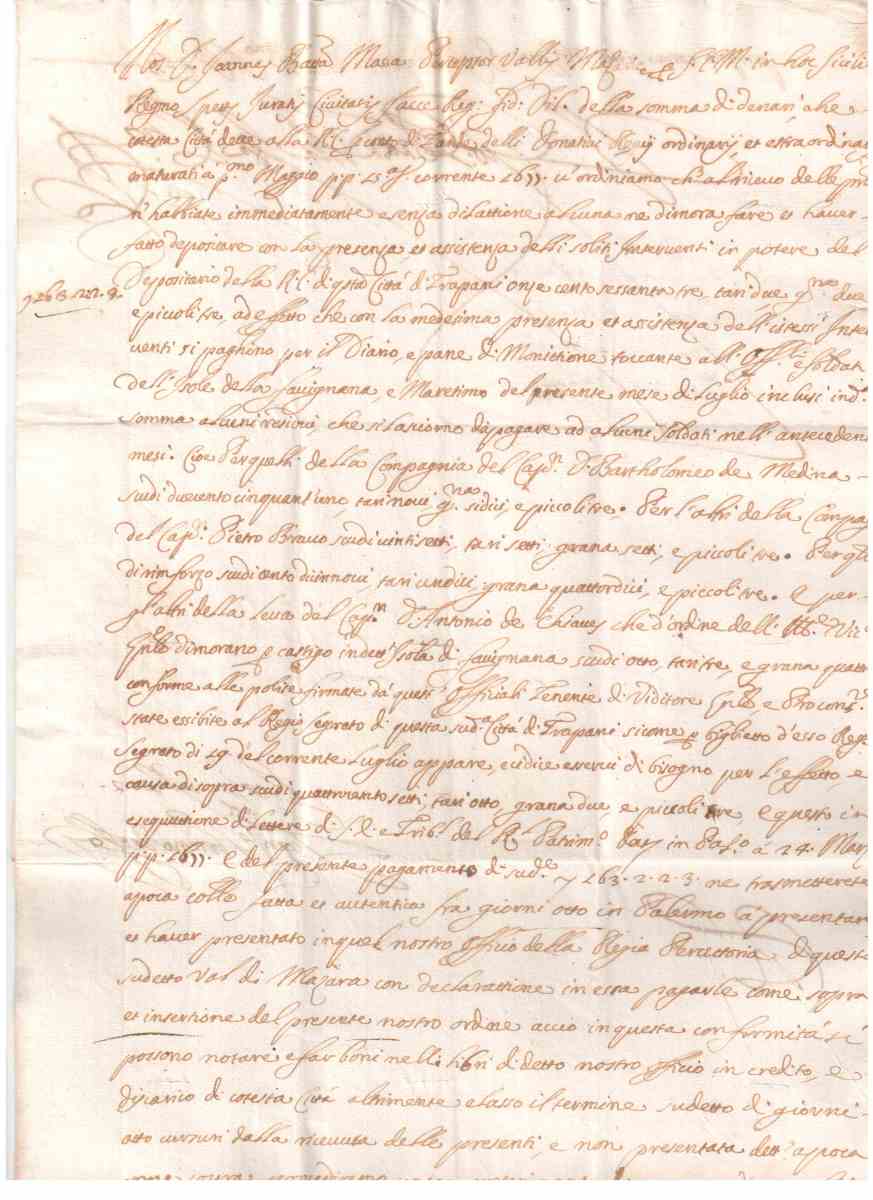 Nos D. Joannes Batta Maca Perceptor Vallis Mazarie S.C.M. in hoc Sicilie
Regno Spett. Juratis Civitatis Sacce Reg: fid: dil. della somma di denari che
cotesta Città deve alla R.C. delli Donativi Regij ordinarij, et estraordinarj
maturati á p.mo Maggio p.p. 15.a Ind. corrente 1677. v'ordiniamo ch'al ricevo delle pnti
n'habbiate immediatamente e senza dilattione alcuna ne dimora fare et haver
fatto depositare con la presenza et assistenza delli soliti Interventi in potere del
Depositario della R.C. di qsta Città di Trapani onze cento sessanta tre, tari due g.na due
7 163. 2. 2. 3.
e piccoli tre, ad effetto che con la medesima presenza et assistenza dell'istessi Inter
venti si paghino per il Diario, e pane di Monittione toccante all' Off.li e soldati
dell'Isole della Favignana, e Maretimo del presente mese di Luglio inclusi in d.a
somma alcuni residui, che si lasciorno di pagare ad alcuni soldati nell'antecedenti
mesi. Cioe Per quelli della Compagnia del Cap.n D. Bartholomeo de Medina
scudi duecento cinquant'uno, tari novi, g.na sidici, e piccoli tre. Per l'altri della Compag
del Cap.n Pietro Bravo scudi vintisetti, tari setti, grana setti, e piccoli tre. Per que
di rinforzo scudi cento dicinnovi, tari undici, grana quattordici, e piccoli tre. E per
gl'altri della leva del Cap.n D. Antonio de Chiaves che d'ordine dell' Ill.e Vic
Gnle dimorano p castigo in dett'Isola di Favignana scudi otto, tari tre, e grana quattro
conforme alle polise firmate da questi Officiali Tenente di Viditore Gnle e Procons.re
state essibite al Regio Segrato di questa sud.a Città di Trapani sicome p biglietto d'esso Regio
Segrato di 19 del corrente Luglio appare, e dice esserci di bisogno per l'effetto, e
causa di sopra scudi quattrocento setti, tari otto, grana due, e piccoli tre e questo in
esequttione di lettere di S.E. e Trib.le del R. Patrim.o Dat. in Pal.o á 24. Marzo
p.p. 1677. E del presente pagamento di sud.e 7 163. 2. 2. 3. ne trasmetterete
apoca colle fatta et autentica fra giorni otto in Palermo á presentar
et haver presentato in quel nostro Officio della Regia Percettoria di questo
sudetto Val di Mazara con declarattione in essa pagarle come sopra
et insertione del presente nostro ordine acció in questa conformitá si
possono notare e far boni nelli libri di detto nostro officio in credito, e
discarico di cotesta Città altrimente elasso il termine sudetto di giorni
otto cursuri dalla ricevuta delle presenti, e non presentata dett'apoca